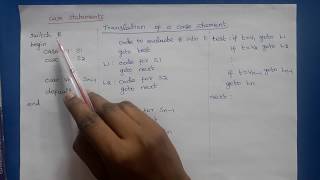 Case Statements
Translation of a case statement.
switch E
begin
case
S1
case
S2
Sn-1
default
end
Code to evaluate E into t
goto test
L1: code for S1
goto next
L2: code for S2
goto next
Sn-1
test: if t=V1 goto L1
if t=V2 goto L2
if t=Vn-1 goto Ln-1
goto Ln
next: